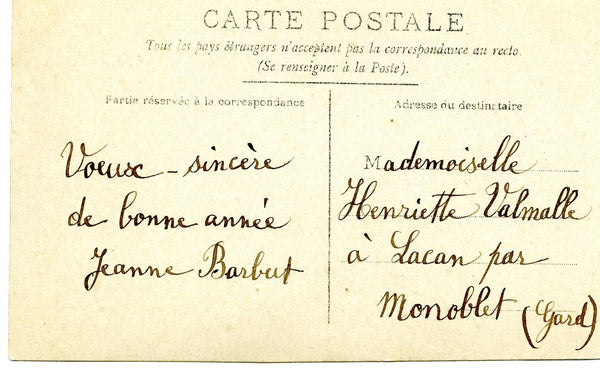 CARTE POSTALE
Tous les pays étrangers n'acceptent pas la correspondance au recto.
(Se renseigner à la Poste).
Partie réservée à la correspondance
Voeux - sincère
de bonne année
Jeanne Barbut
Adresse du destinataire
Mademoiselle
Henriette Valmalle
à Lacan par
Monoblet (Gard)